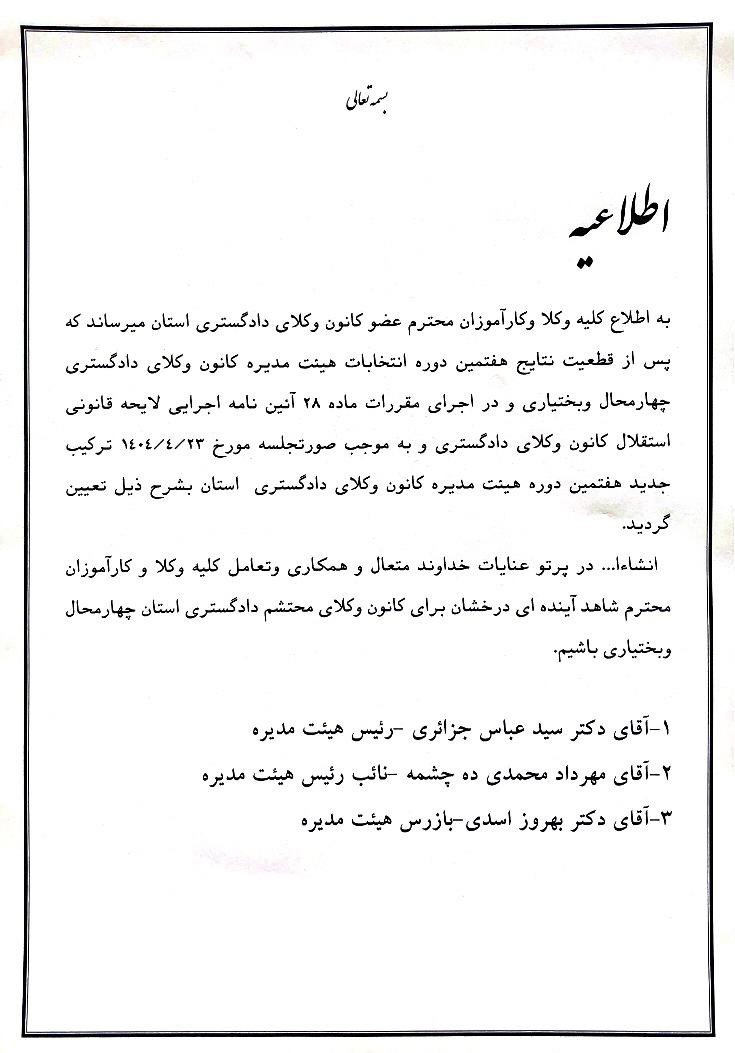 بسمه تعالی
اطلاعیه
به اطلاع کلیه وکلا وکارآموزان محترم عضو کانون وکلای دادگستری استان میرساند که
پس از قطعیت نتایج هفتمین دوره انتخابات هیئت مدیره کانون وکلای دادگستری
چهارمحال وبختیاری و در اجرای مقررات ماده ۲۸ آئین نامه اجرایی لایحه قانونی
استقلال کانون وکلای دادگستری و به موجب صورتجلسه مورخ ۱۴۰۴/۴/۲۳ ترکیب
جدید هفتمین دوره هیئت مدیره کانون وکلای دادگستری استان بشرح ذیل تعیین
گردید.
انشاءا... در پرتو عنایات خداوند متعال و همکاری وتعامل کلیه وکلا و کارآموزان
محترم شاهد آینده ای درخشان برای کانون وکلای محتشم دادگستری استان چهارمحال
وبختیاری باشیم.
۱-آقای دکتر سید عباس جزائری -رئیس هیئت مدیره
۲-آقای مهرداد محمدی ده چشمه -نائب رئیس هیئت مدیره
۳-آقای دکتر بهروز اسدی-بازرس هیئت مدیره